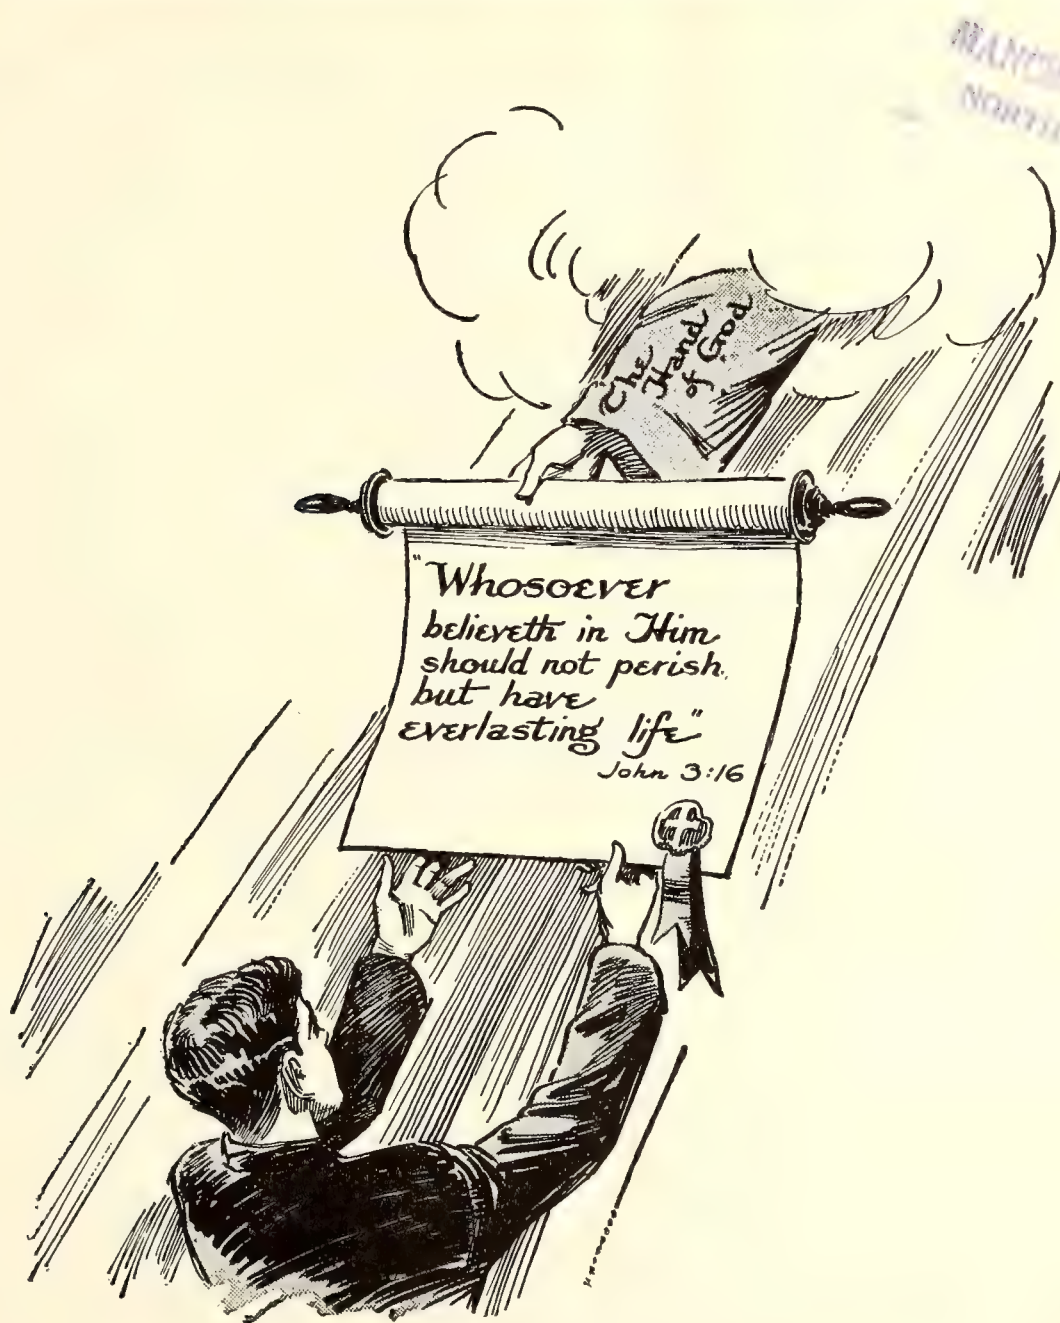 The
Hand
of God
"Whosoever
believeth in Him
should not perish,
but have
everlasting life"
John 3:16